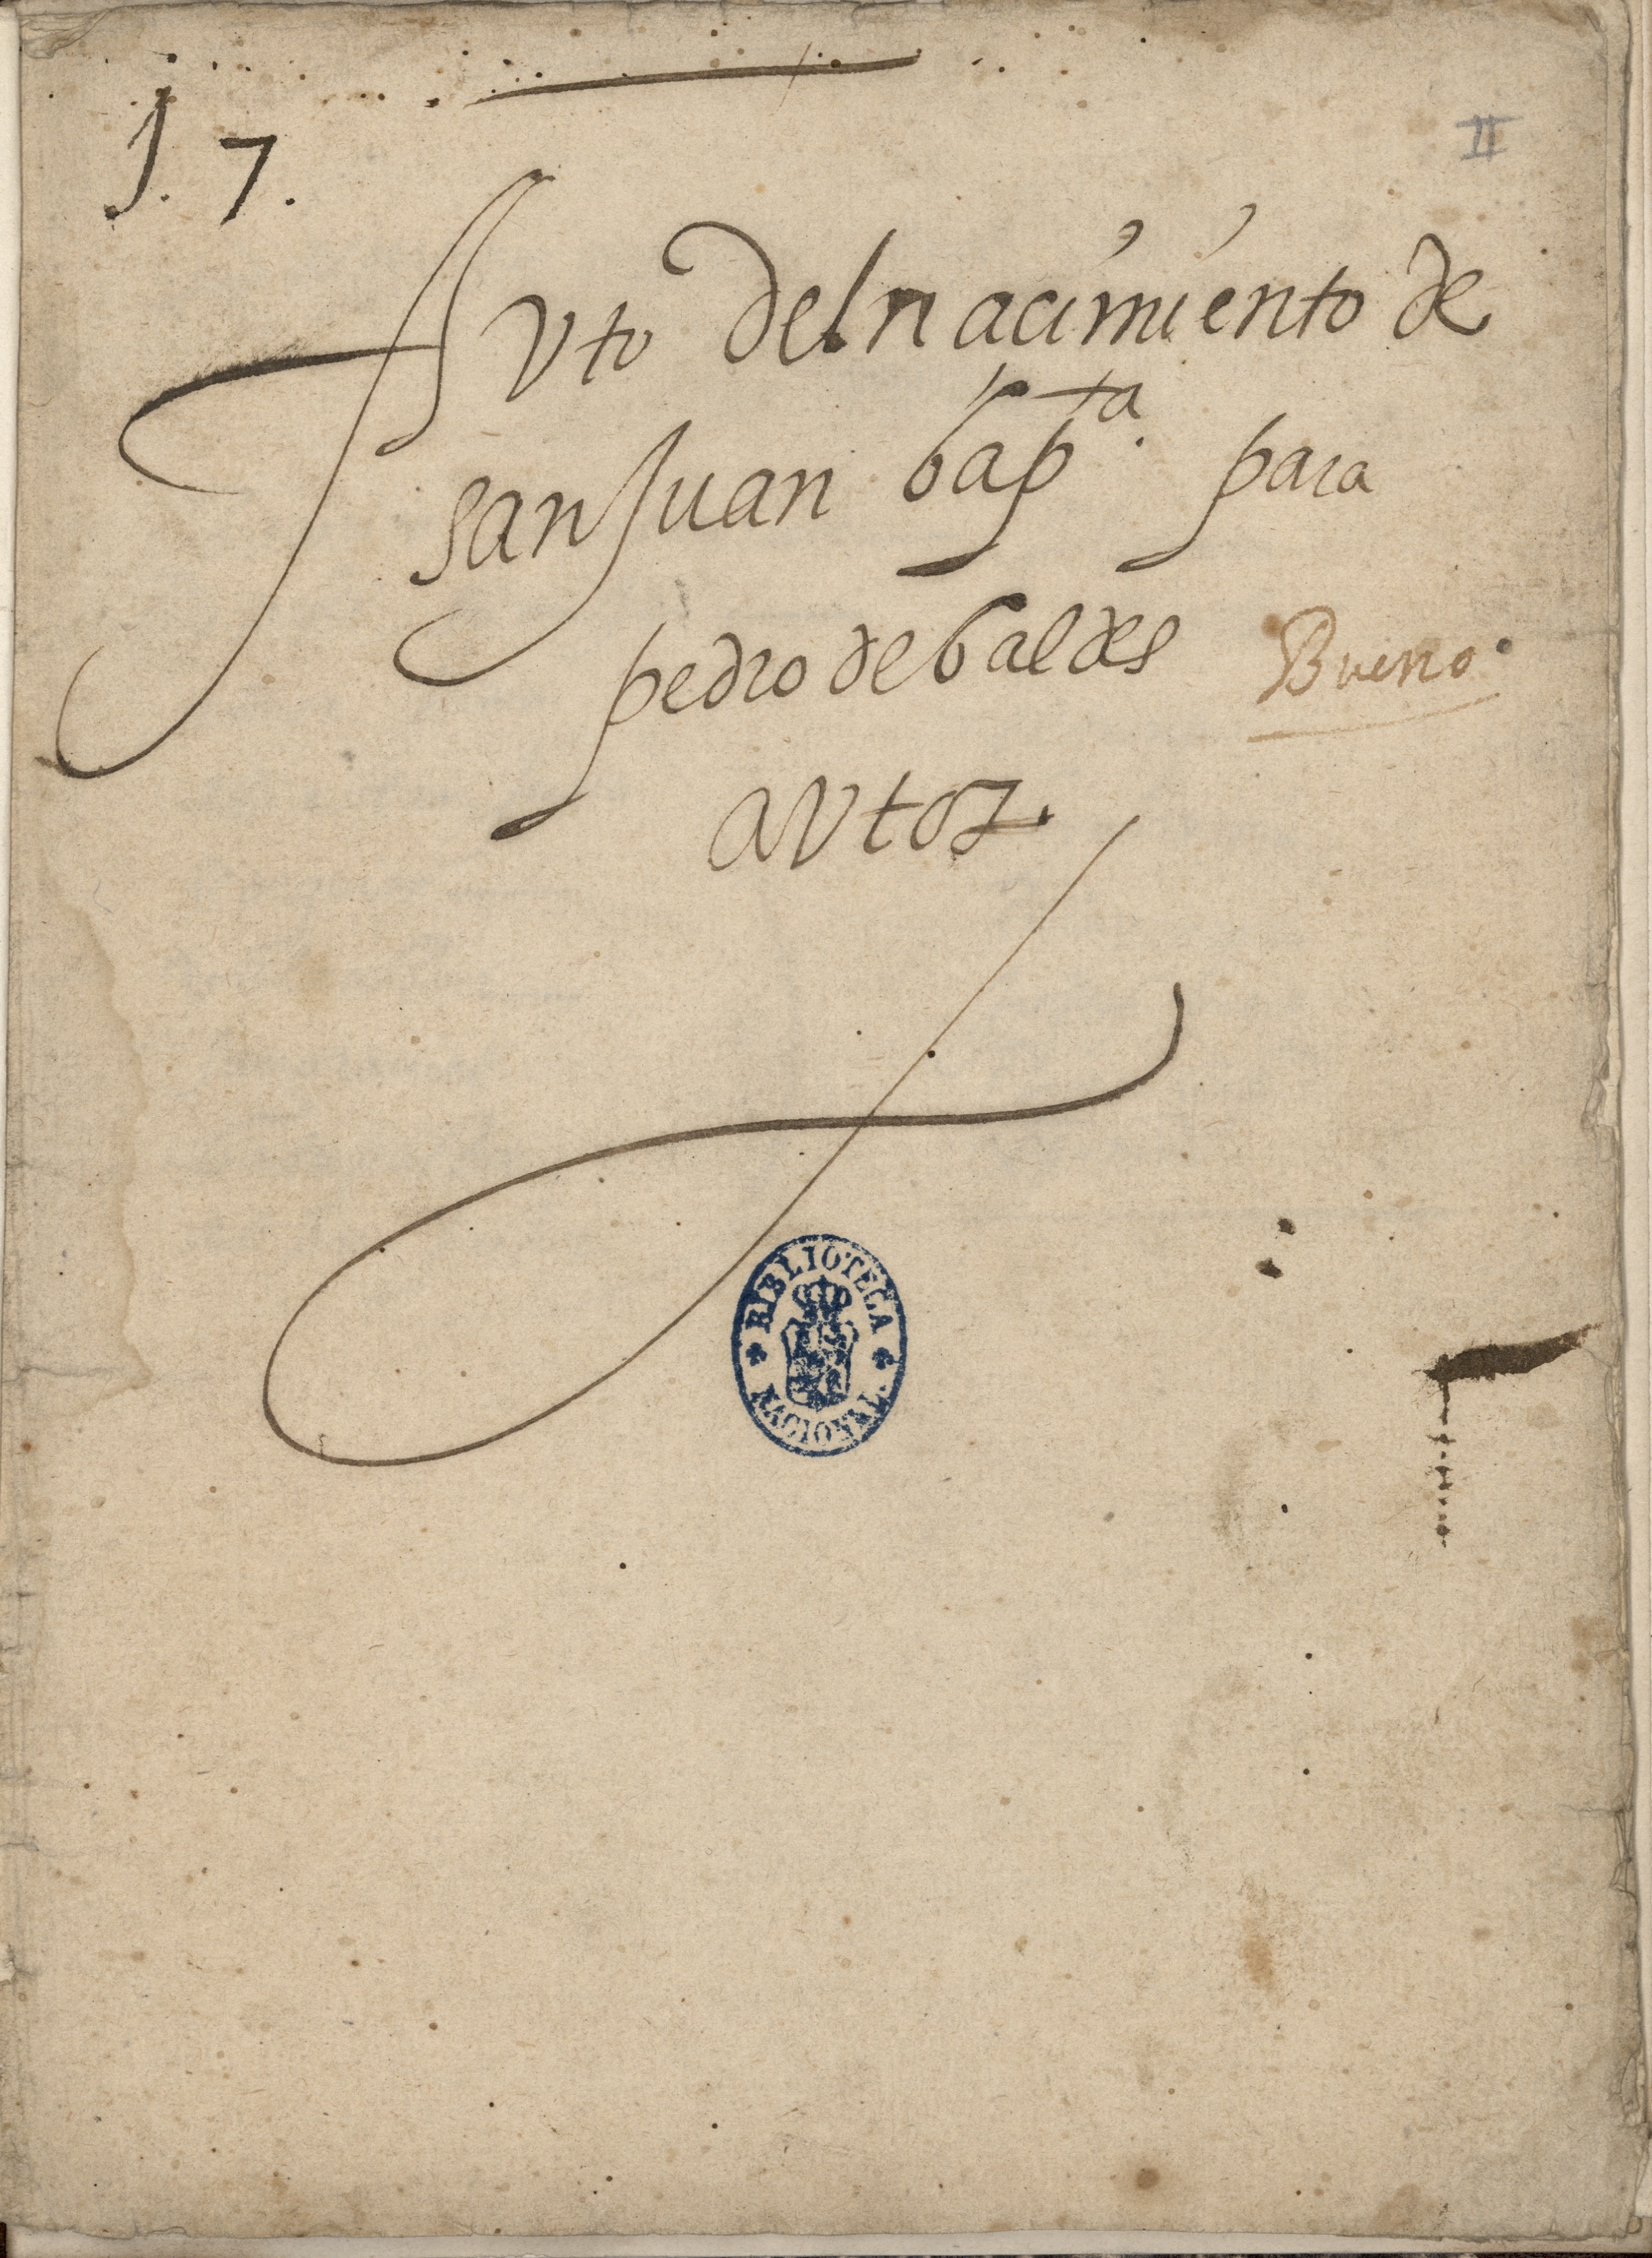 J. 7.
II
Avto del nacimiento de
san Juan bap.ta para
pedro de baldes
Bueno.
avtor.
BIBLIOTECA
NACIONAL